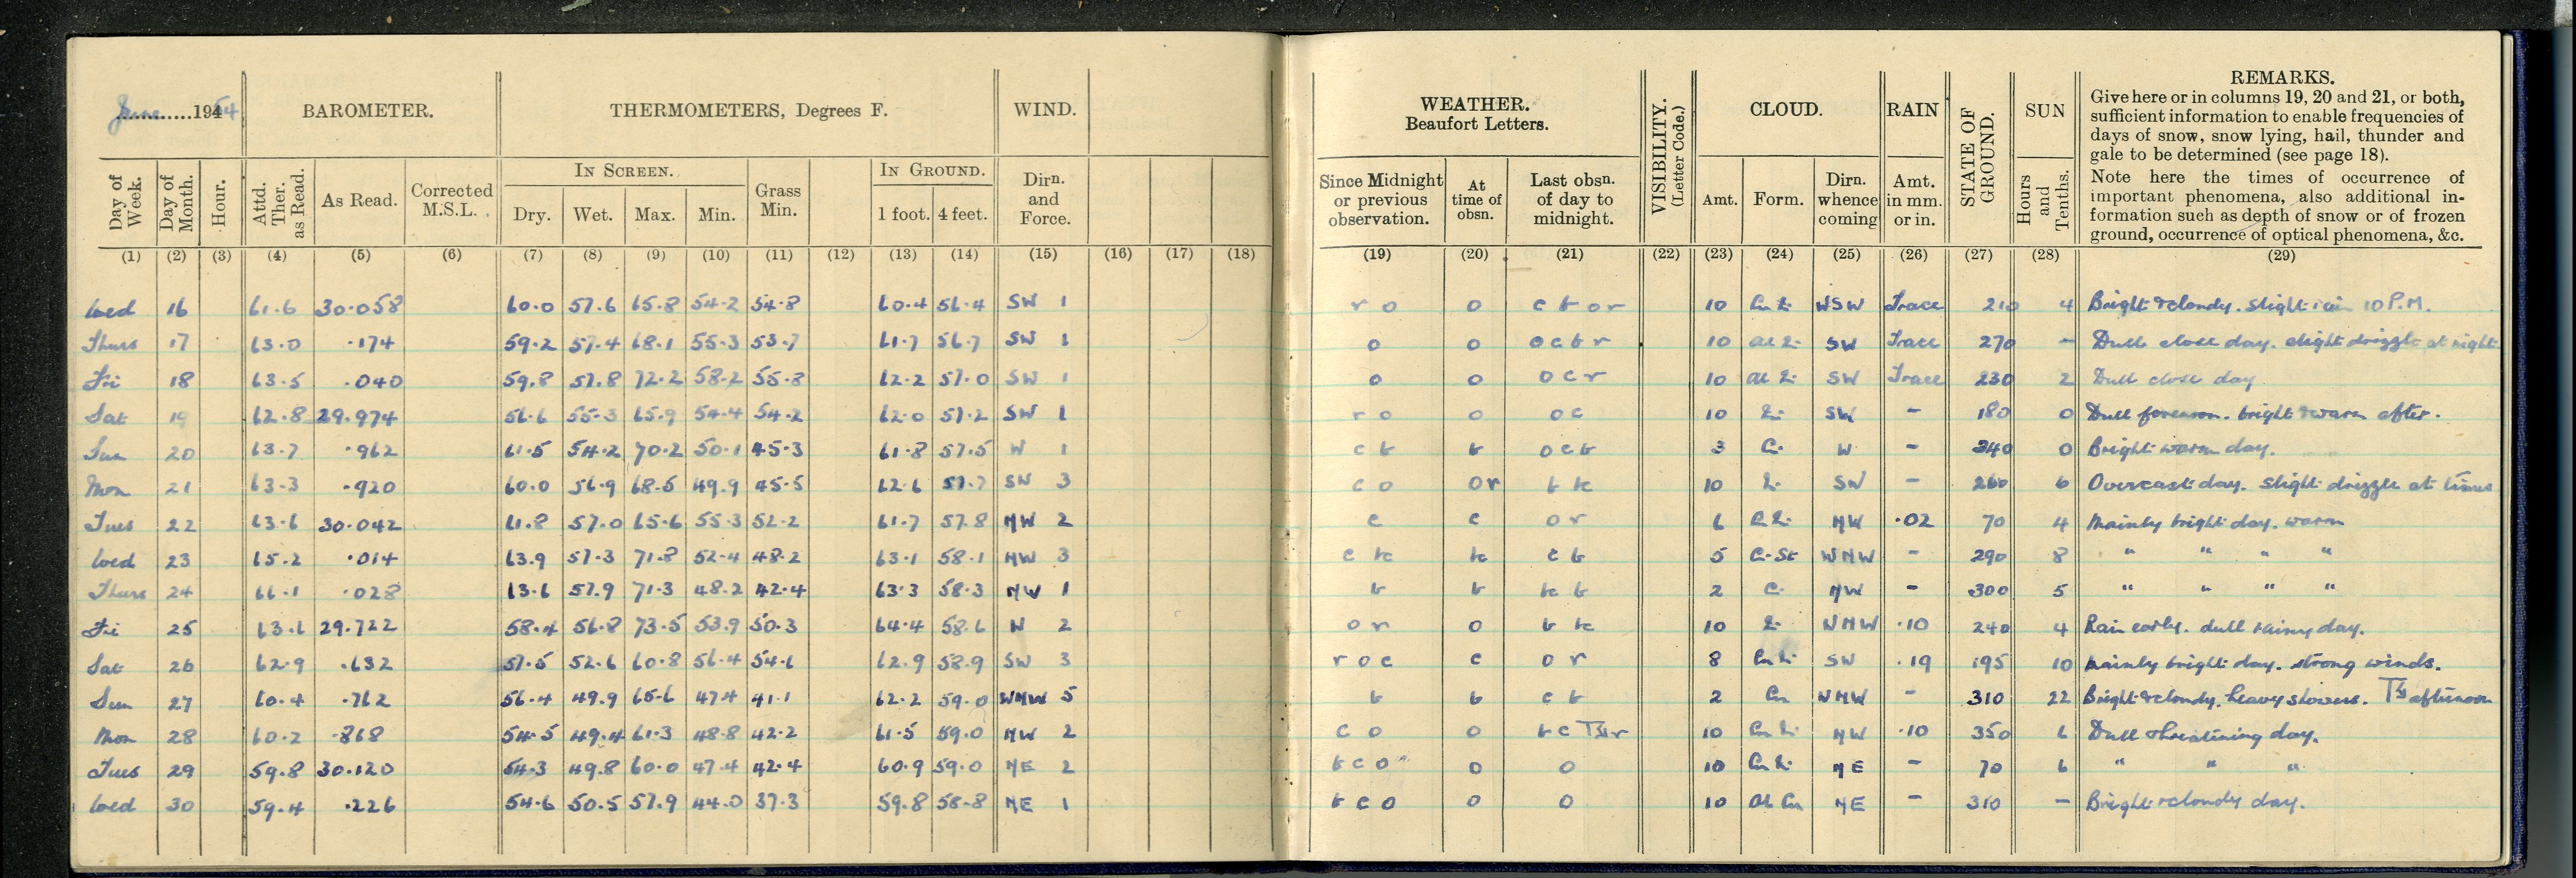 June 1954 BAROMETER. THERMOMETERS, Degrees F. WIND.
Day of Week. Day of Month. Hour. Attd. Ther. as Read. As Read. Corrected M.S.L. IN SCREEN. Dry. Wet. Max. Min. Grass Min. IN GROUND. 1 foot. 4 feet. Dirn. and Force.
(1) (2) (3) (4) (5) (6) (7) (8) (9) (10) (11) (12) (13) (14) (15) (16) (17) (18)
Wed 16 61.6 30.058 60.0 57.6 65.8 54.2 54.8 60.4 56.4 SW 1
Thurs 17 63.0 .174 59.2 57.4 68.1 55.3 53.7 61.7 56.7 SW 1
Fri 18 63.5 .040 59.8 57.8 72.2 58.2 55.8 62.2 57.0 SW 1
Sat 19 62.8 29.974 56.6 55.3 65.9 54.4 54.2 62.0 57.2 SW 1
Sun 20 63.7 .962 61.5 54.2 70.2 50.1 45.3 61.8 57.5 W 1
Mon 21 63.3 .920 60.0 56.9 68.5 49.9 45.5 62.6 57.7 SW 3
Tues 22 63.6 30.042 61.8 57.0 65.6 55.3 52.2 61.7 57.8 NW 2
Wed 23 65.2 .014 63.9 57.3 71.8 52.4 48.2 63.1 58.1 NW 3
Thurs 24 66.1 .028 63.6 57.9 71.3 48.2 42.4 63.3 58.3 NW 1
Fri 25 63.1 29.722 58.4 56.8 73.5 53.9 50.3 64.4 58.6 W 2
Sat 26 62.9 .632 57.5 52.6 60.8 56.4 54.6 62.9 58.9 SW 3
Sun 27 60.4 .762 56.4 49.9 65.6 47.4 41.1 62.2 59.0 WNW 5
Mon 28 60.2 .868 54.5 49.4 61.3 48.8 42.2 61.5 59.0 NW 2
Tues 29 59.8 30.120 54.3 49.8 60.0 47.4 42.4 60.9 59.0 NE 2
Wed 30 59.4 .226 54.6 50.5 57.9 44.0 37.3 59.8 58.8 NE 1
WEATHER. Beaufort Letters. VISIBILITY. (Letter Code.) CLOUD. RAIN STATE OF GROUND. SUN REMARKS.
Give here or in columns 19, 20 and 21, or both,
sufficient information to enable frequencies of
days of snow, snow lying, hail, thunder and
gale to be determined (see page 18).
Note here the times of occurrence of
important phenomena, also additional in-
formation such as depth of snow or of frozen
ground, occurrence of optical phenomena, &c.
Since Midnight or previous observation. At time of obsn. Last obsn. of day to midnight. Amt. Form. Dirn. whence coming Amt. in mm. or in. Hours and Tenths.
(19) (20) (21) (22) (23) (24) (25) (26) (27) (28) (29)
r o o c b o r 10 WSW Trace 210 4 Bright & cloudy. Slight rain 10 P.M.
o o o c b r 10 SW Trace 270 - Dull close day. slight drizzle at night.
o o o c r 10 SW Trace 230 2 Dull close day
r o o o c 10 SW - 180 0 Dull forenoon. bright & warm after.
c b b o c b 3 C. W - 340 0 Bright warm day.
c o o r 10 SW - 260 6 Overcast day. Slight drizzle at times
c c o r 6 NW .02 70 4 Mainly bright day. warm
c b 5 C-St WNW - 290 8 " " " "
b b 2 C. NW - 300 5 " " " "
o r o 10 WNW .10 240 4 Rain early. dull rainy day.
r o c c o r 8 SW .19 195 10 Mainly bright day. strong winds.
b b c b 2 Cu WNW - 310 22 Bright & cloudy. heavy showers. afternoon
c o o 10 NW .10 350 6 Dull threatening day.
b c o o o 10 NE - 70 6 " " "
b c o o o 10 NE - 310 - Bright & cloudy day.